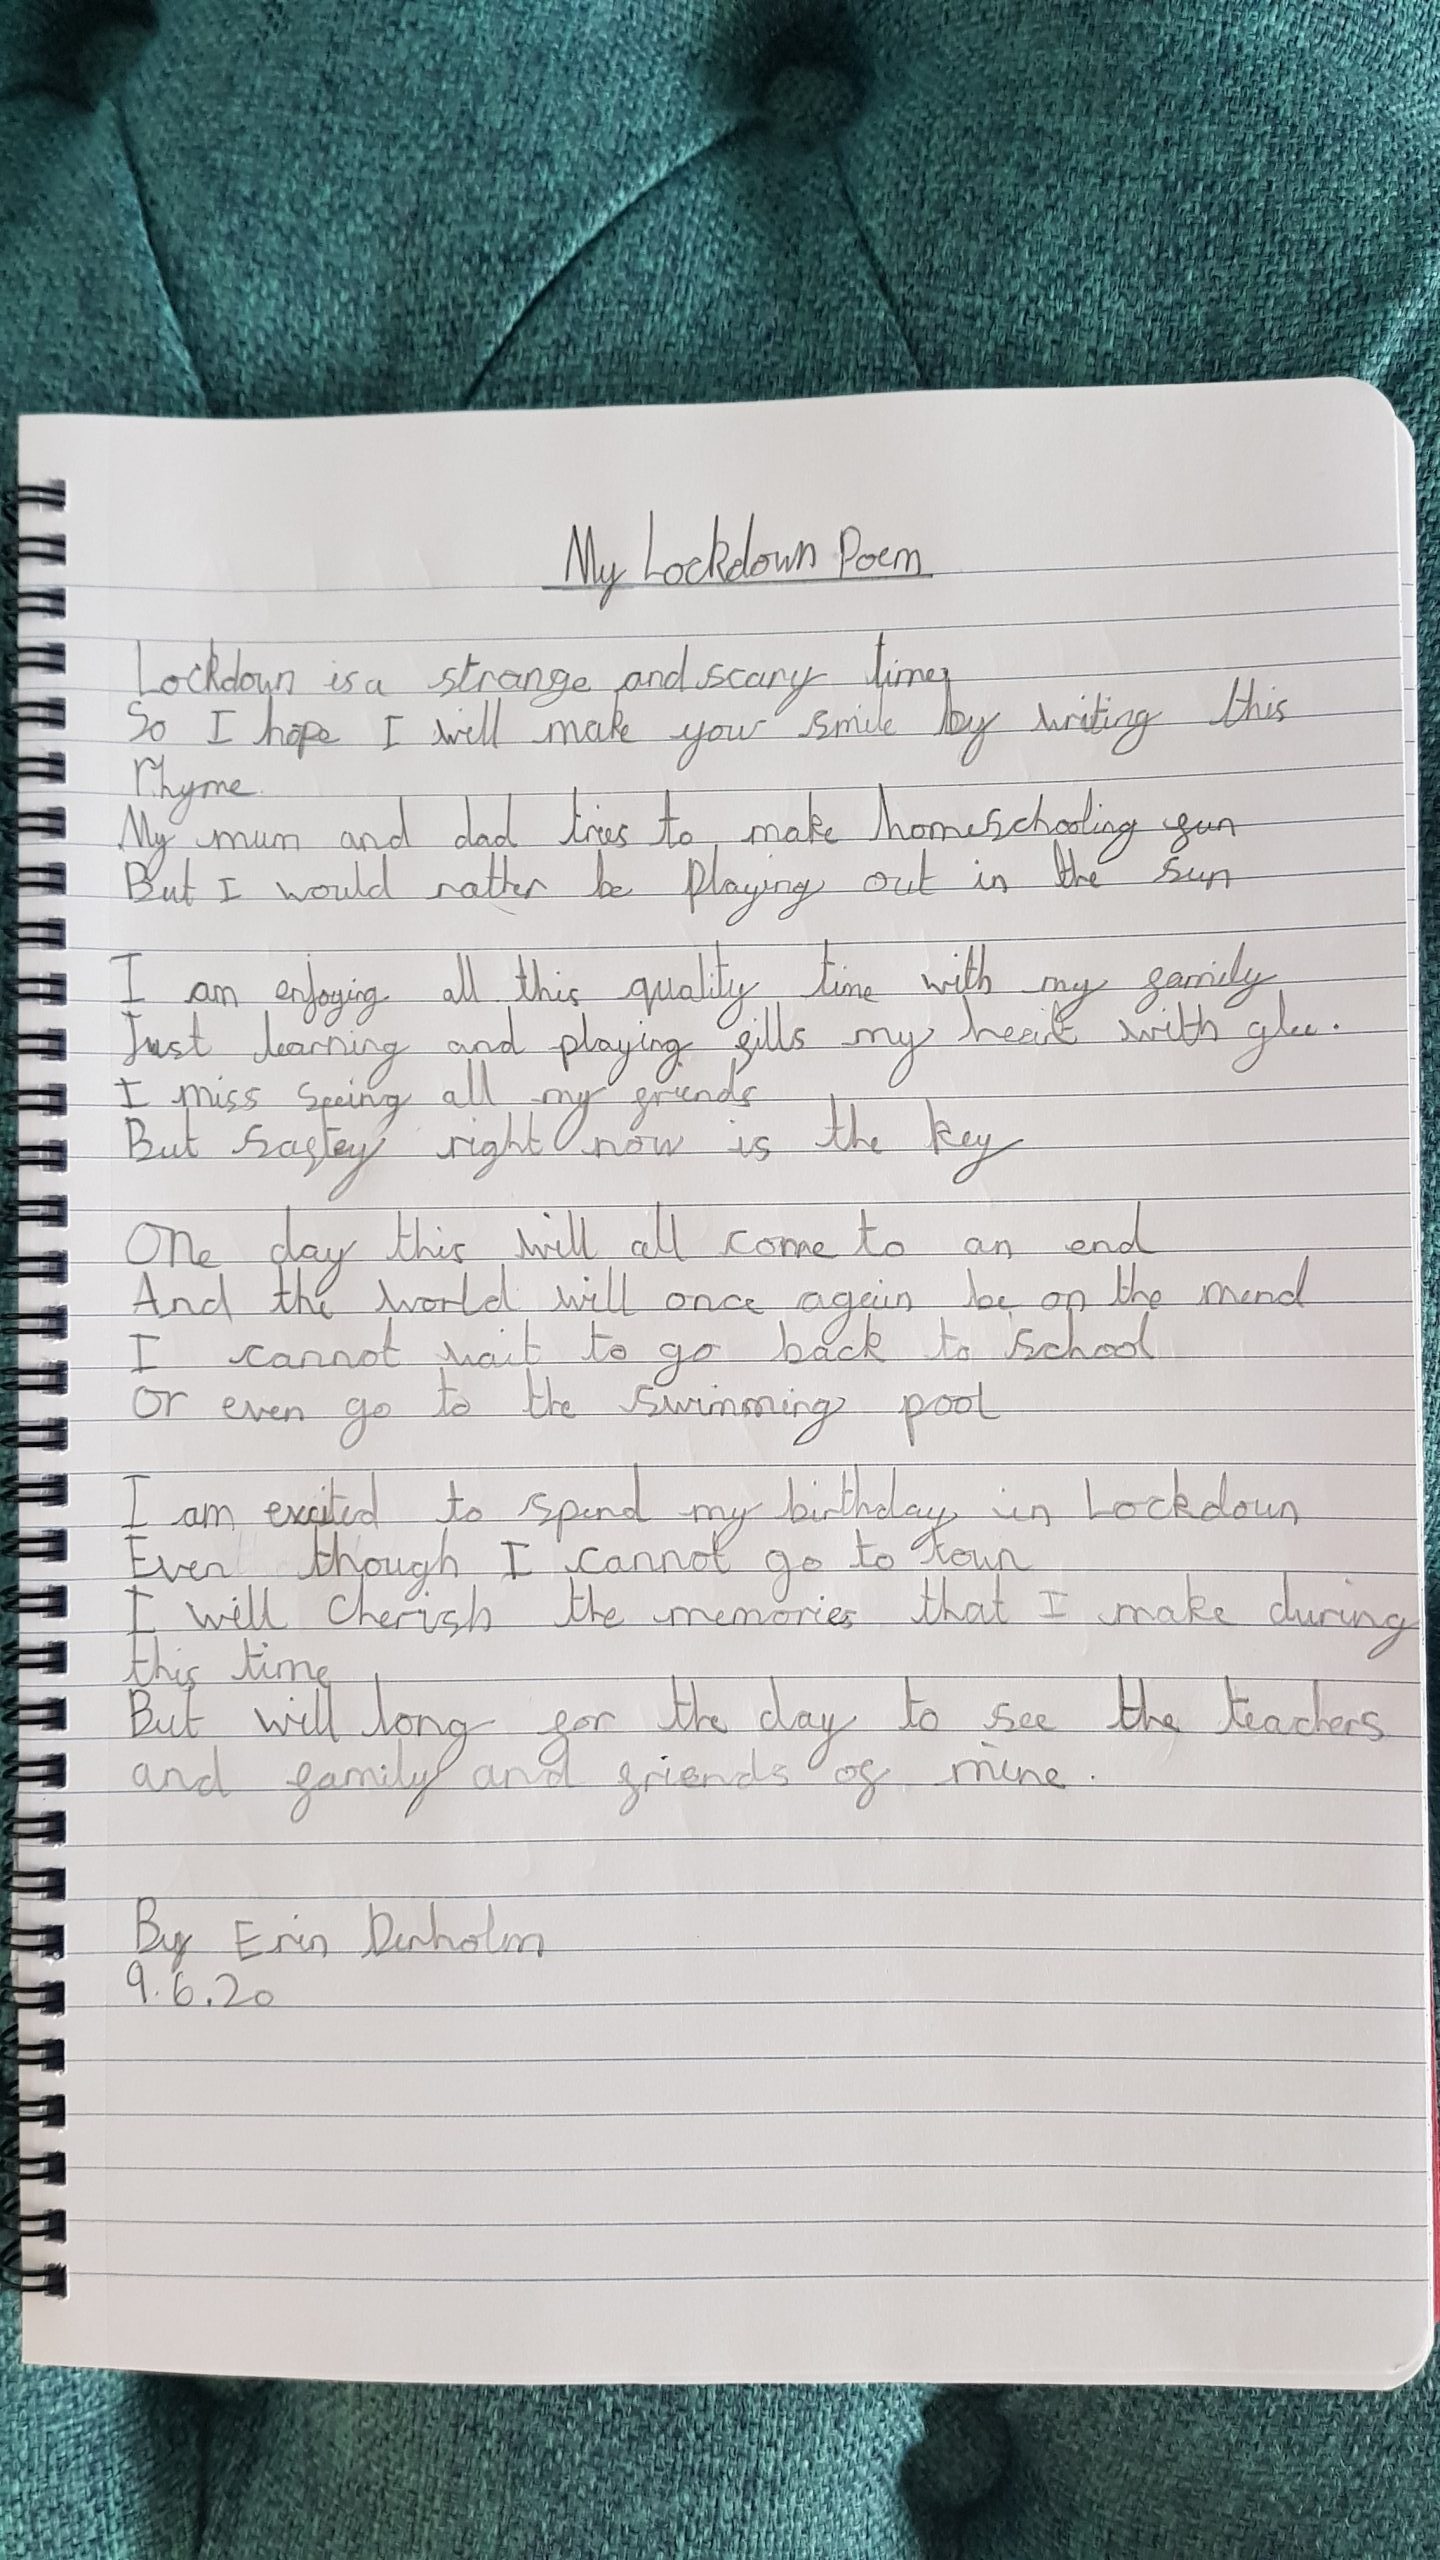 My Lockdown Poem
Lockdown is a strange and scary time,
So I hope I will make your smile by writing this
rhyme
My mum and dad tries to make homeschooling fun
But I would rather be playing out in the sun
I am enjoying all this quality time with my family
Just learning and playing fills my heart with glee.
I miss seeing all my friends
But saftey right now is the key
One day this will all come to an end
And the world will once again be on the mend
I cannot wait to go back to school
Or even go to the swimming pool
I am excited to spend my birthday in Lockdown
Even though I cannot go to town
I will cherish the memories that I make during
this time
But will long for the day to see the teachers
and family and friends of mine.
By Erin Denholm
9.6.20